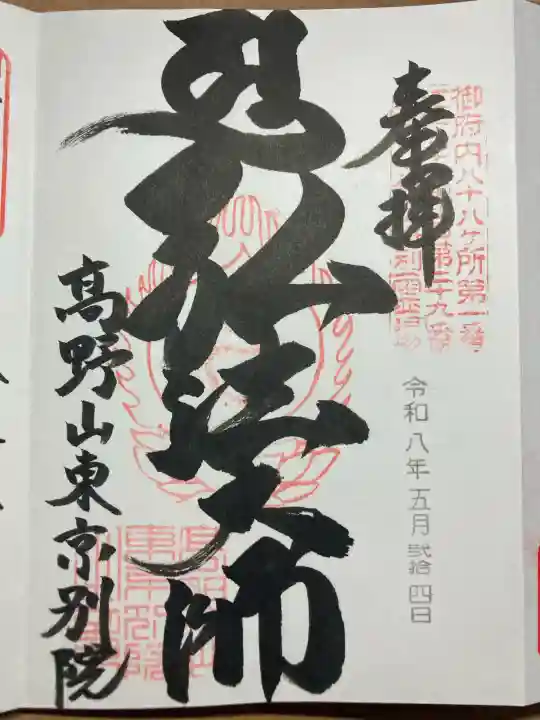 奉拝
御府内八十八ヶ所第一番
令和八年五月弐拾四日
弘法大師
高野山東京別院